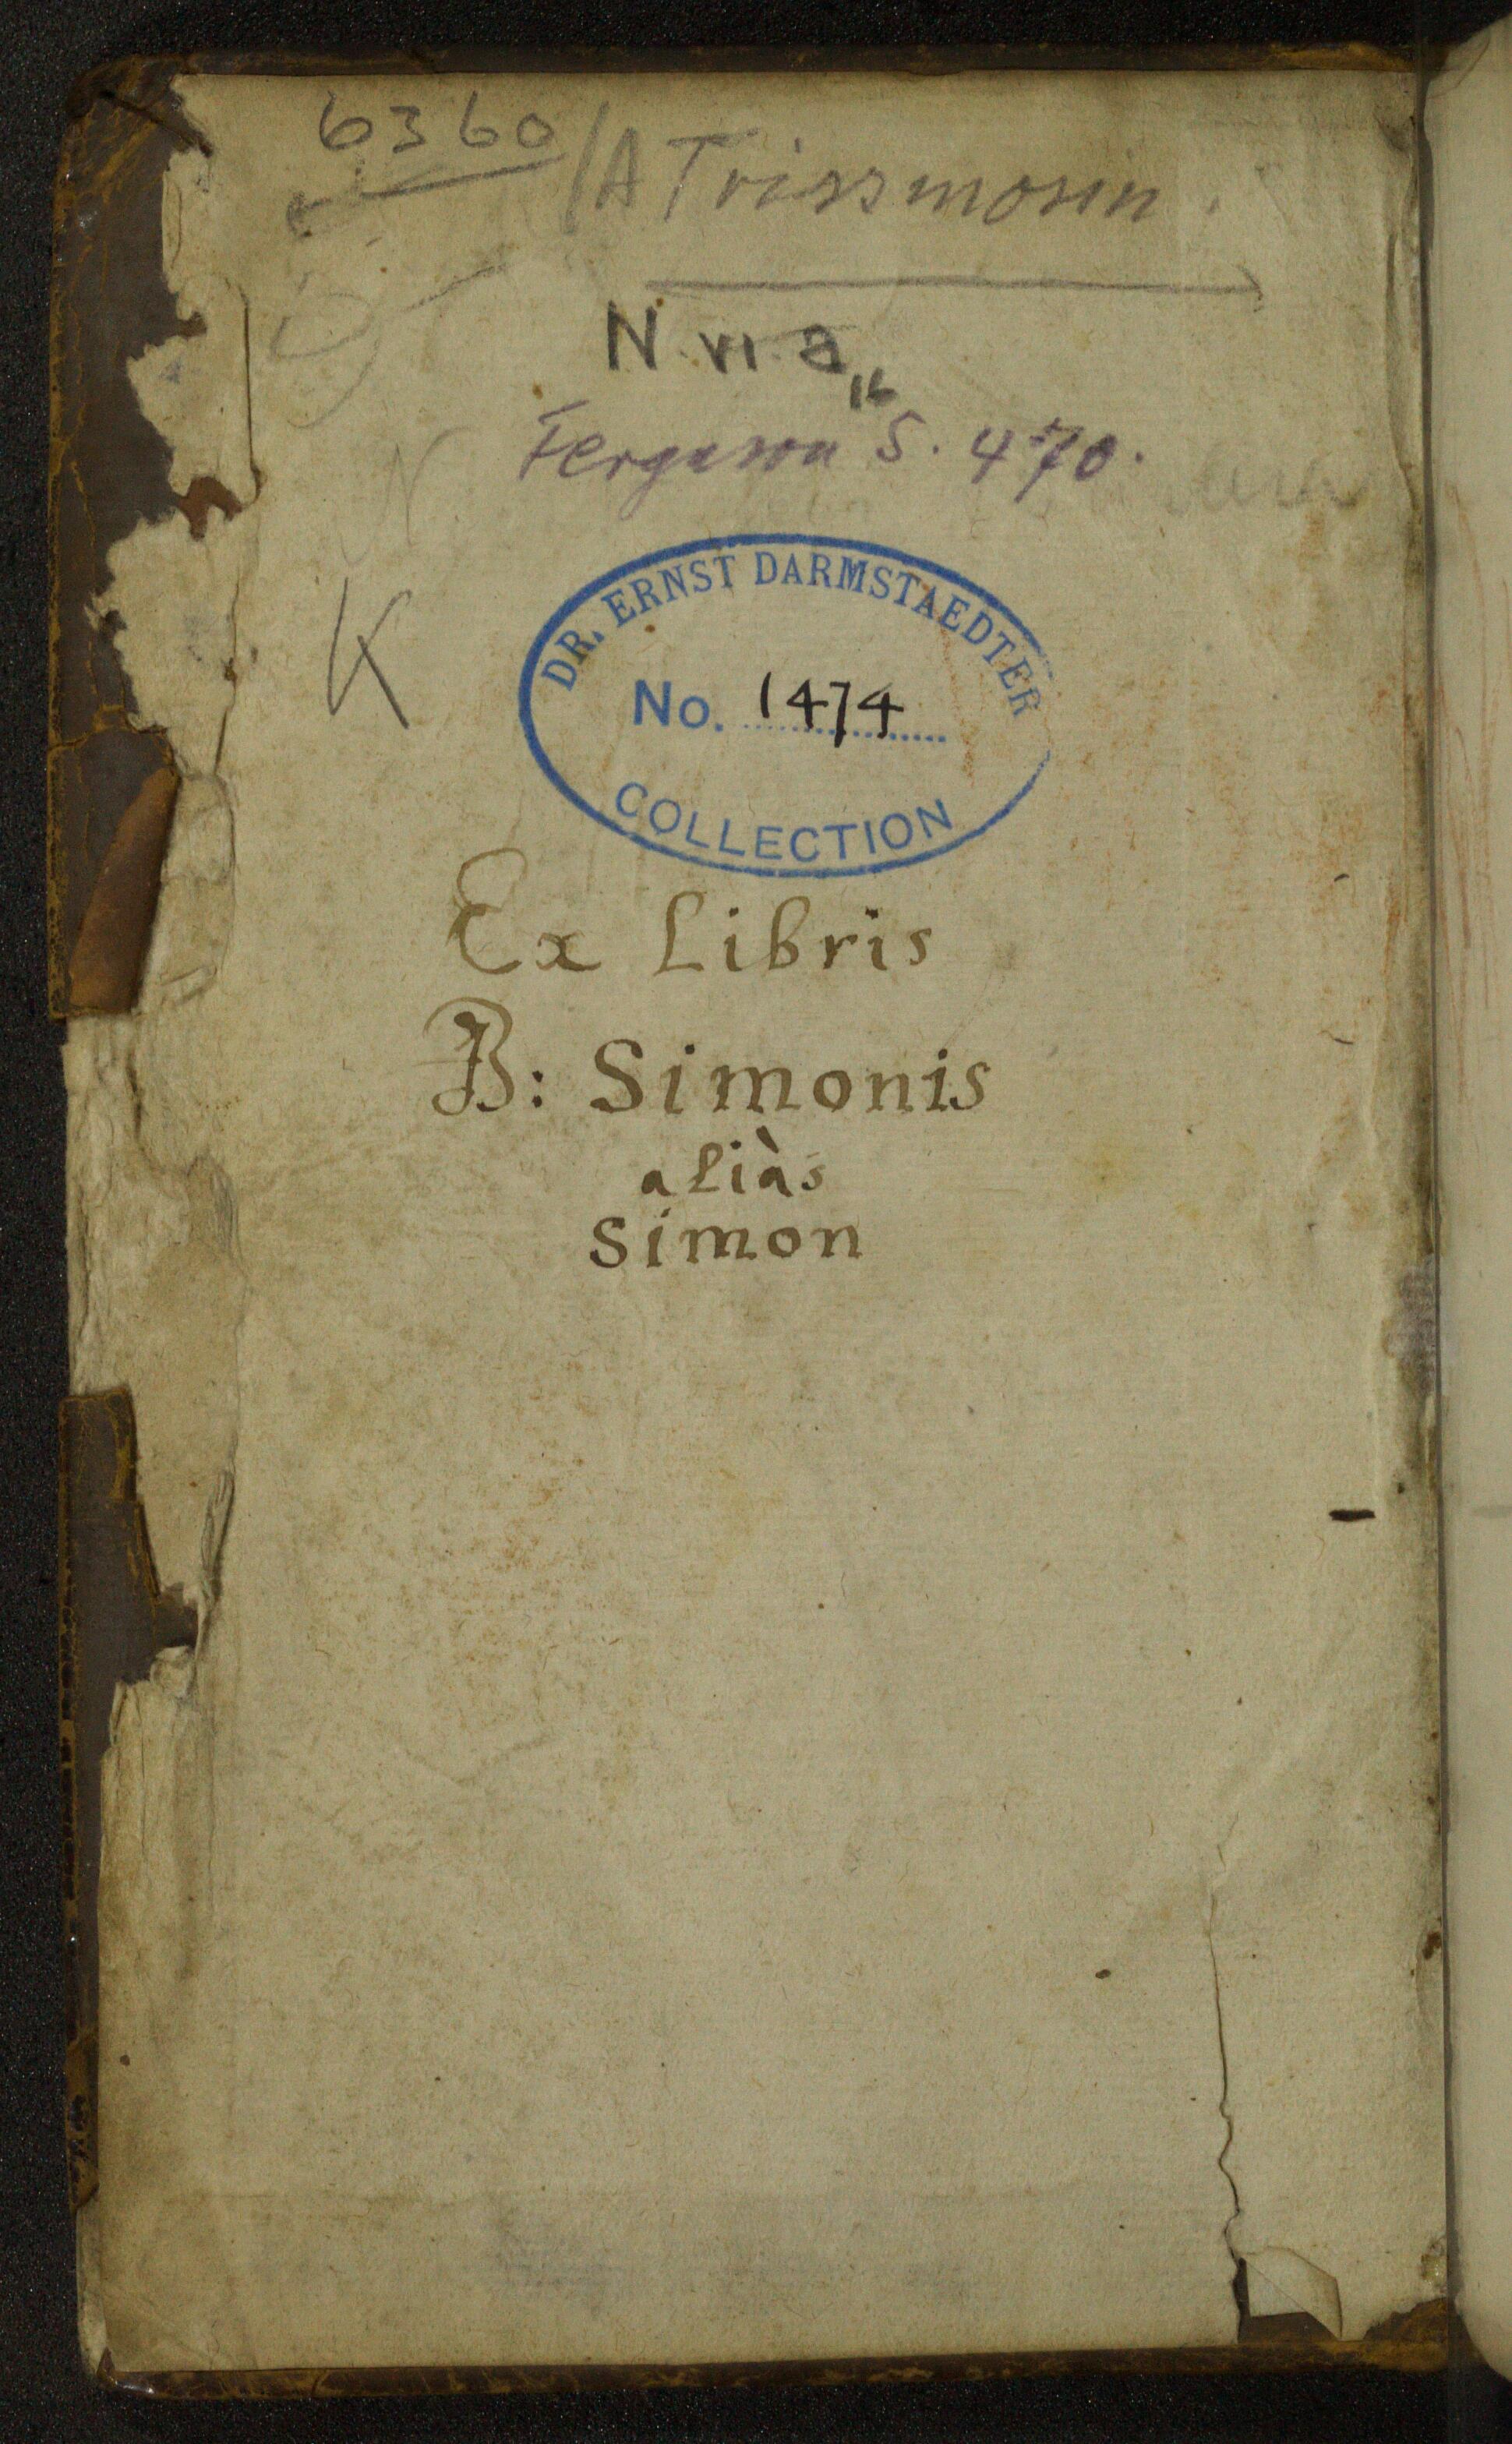 6360/A Trissmosin.
N. VI. a 16
Ferguson S. 470.
K
DR. ERNST DARMSTAEDTER
No. 1474
COLLECTION
Ex Libris
B: Simonis
aliàs
Simon